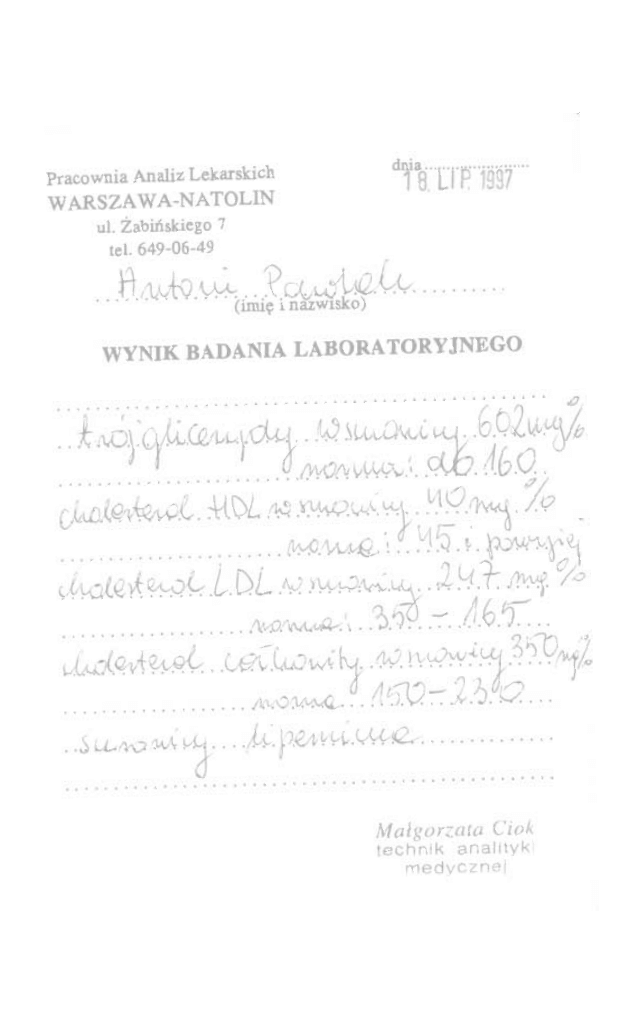 dnia
18. LIP. 1997
Pracownia Analiz Lekarskich
WARSZAWA-NATOLIN
ul. Żabińskiego 7
tel. 649-06-49
Antoni
(imię i nazwisko)
WYNIK BADANIA LABORATORYJNEGO
trójglicerydy w surowicy 602 mg%
norma: do 160
cholesterol HDL w surowicy 40 mg%
norma: 45 i powyżej
cholesterol LDL w surowicy 247 mg%
norma: 350 - 165
cholesterol całkowity w surowicy 350 mg%
norma 150-230
surowicy lipemiczna
Małgorzata Ciok
technik analityki
medycznej